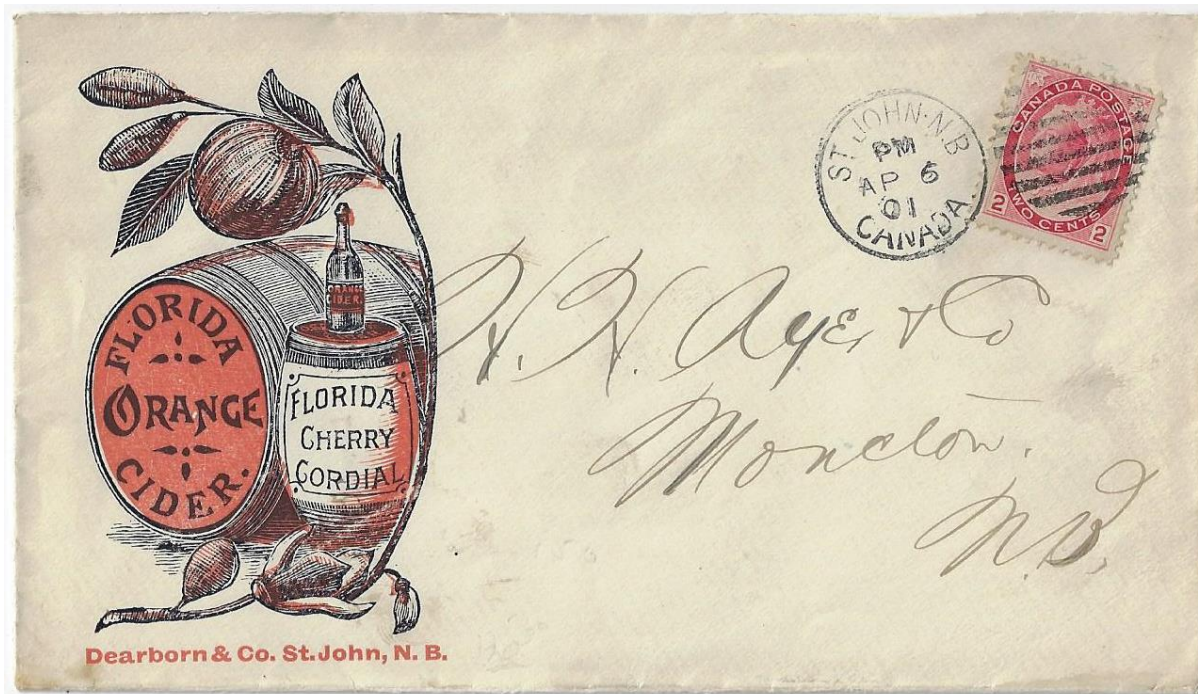 FLORIDA
ORANGE
CIDER.
ORANGE
CIDER.
FLORIDA
CHERRY
CORDIAL
Dearborn & Co. St. John, N. B.
ST. JOHN·N.B
PM
AP 6
01
CANADA
CANADA POSTAGE
TWO CENTS
2 2
H. H. Aye, & Co
Moncton.
N.B.